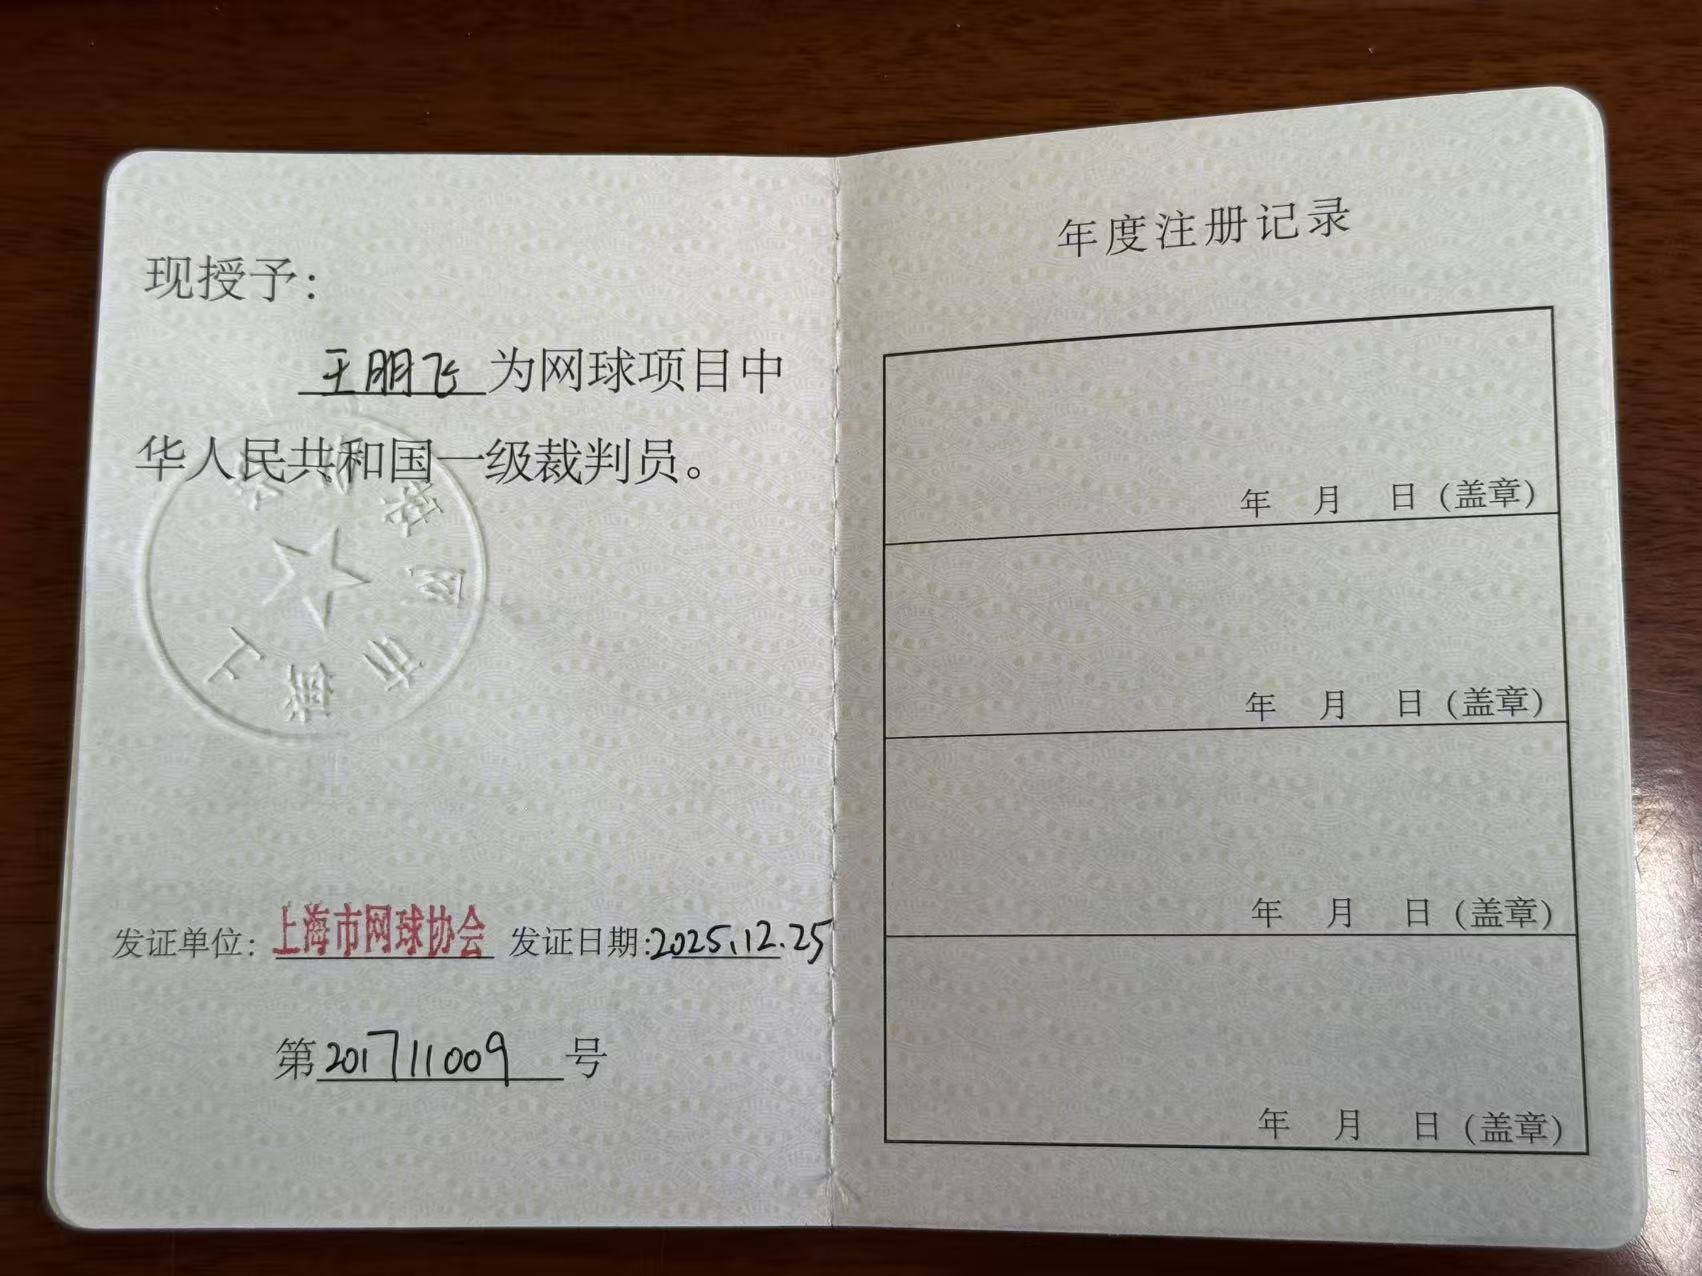 现授予：
王朋飞 为网球项目中
华人民共和国一级裁判员。
上海市网球协会
发证单位：上海市网球协会 发证日期:2025.12.25
第201711009号
年度注册记录
年 月 日（盖章）
年 月 日（盖章）
年 月 日（盖章）
年 月 日（盖章）